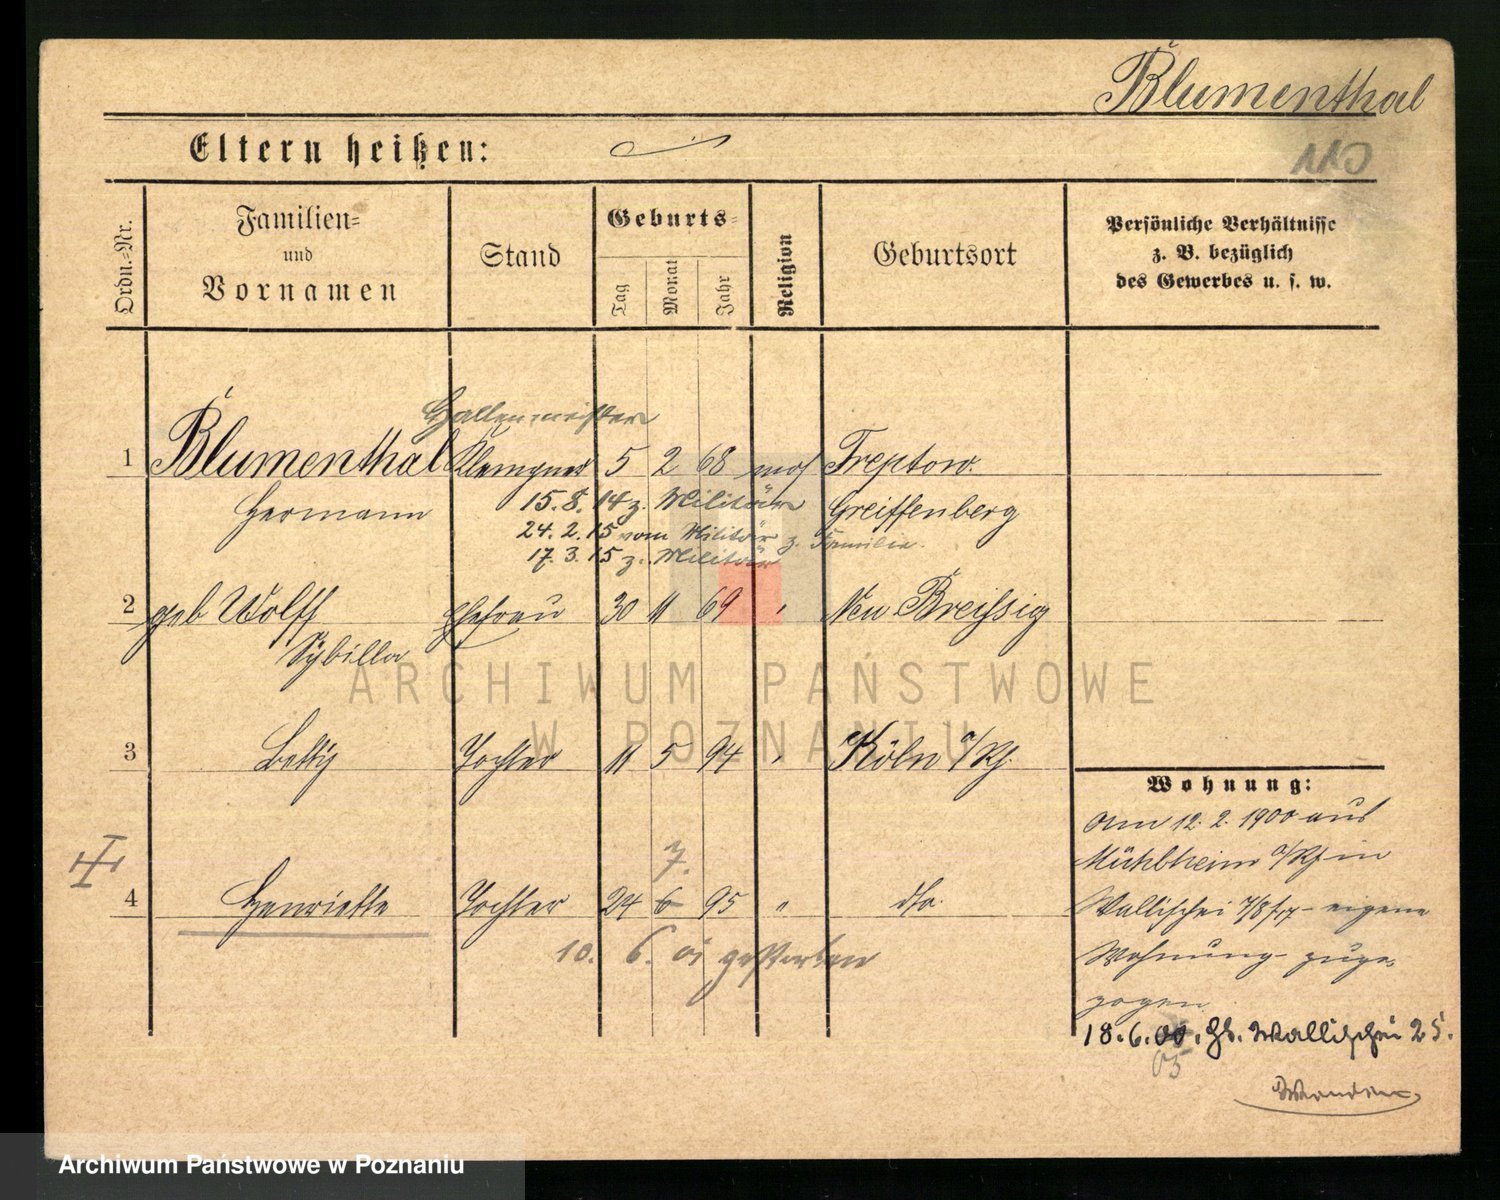 Blumenthal
Eltern heißen:
110
Ordn.=Nr.
Familien=
und
Vornamen
Stand
Geburts=
Tag
Monat
Jahr
Religion
Geburtsort
Persönliche Verhältnisse
z. B. bezüglich
des Gewerbes u. s. w.
Hallenmeister
1 Blumenthal Klempner 5 2 68 mos Treptow
Hermann 15. 8. 14 z. Militär Greiffenberg
24. 2. 15 vom Militär z. Familie.
17. 3. 15 z. Militär
2 geb Wolff Ehefrau 30 11 69 " Neu Breißig
Sybilla
3 Betty Tochter 11 5 94 " Köln a/Rh.
Wohnung:
Am 12. 2. 1900 aus
Mühlheim a/Rh in
7.
4 Henriette Tochter 24 6 95 " dto.
Wallischei 7/8 eigene
10. 6. 01 gestorben
Wohnung zuge-
zogen
18. 6. 00. Hs. Wallischei 25.
05
ARCHIWUM PAŃSTWOWE
W POZNANIU
Archiwum Państwowe w Poznaniu